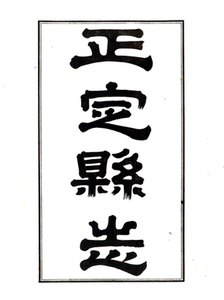 正定縣志